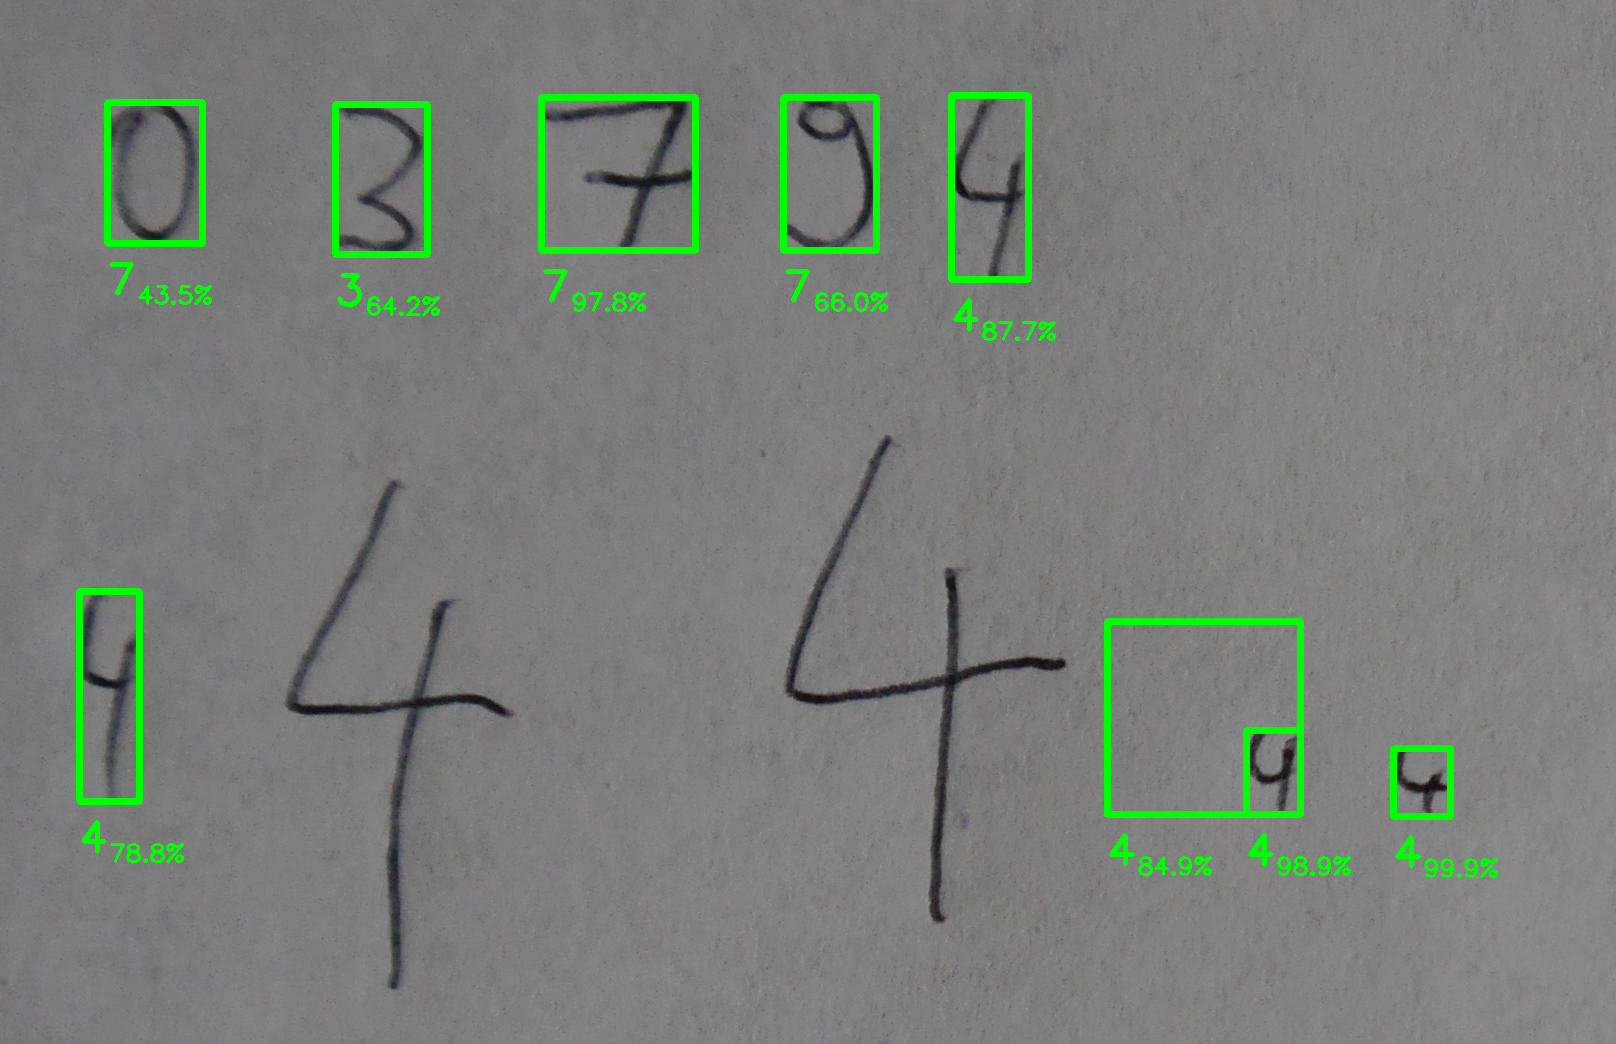 0 3 7 9 4
7 43.5% 3 64.2% 7 97.8% 7 66.0% 4 87.7%
4 4 4 4 4
4 78.8% 4 84.9% 4 98.9% 4 99.9%